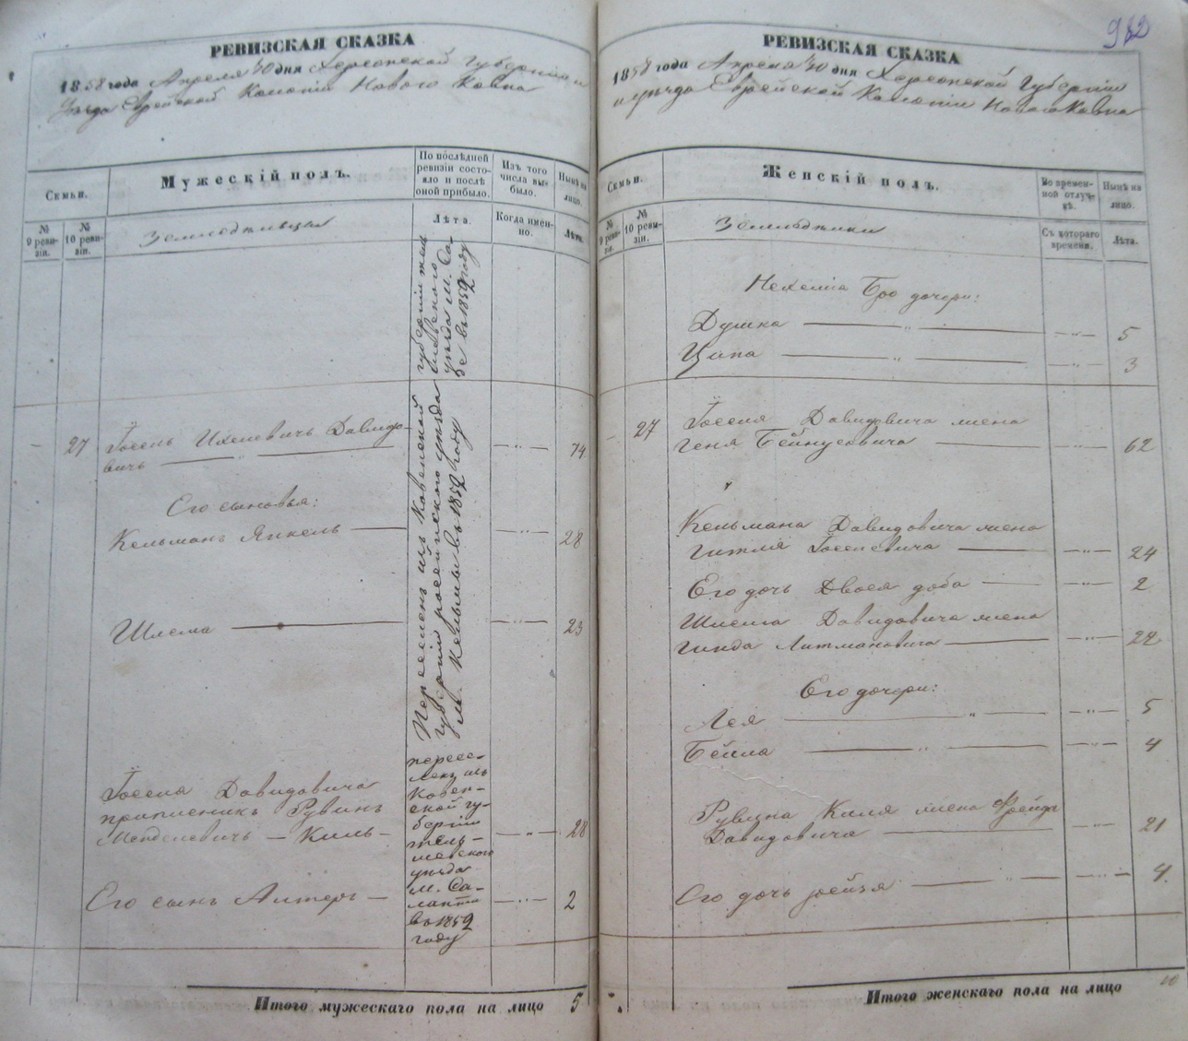 982
РЕВИЗСКАЯ СКАЗКА
1858 года Апреля 30 дня Херсонской Губерніи и
уѣзда Еврейской Колоніи Новаго Ковна
Семьи.
Мужескій полъ.
По послѣдней ревизіи состояло и послѣ оной прибыло.
Изъ того числа выбыло.
Нынѣ на лицо.
№ 9 ревизіи.
№ 10 ревизіи.
Земледѣльцы
Лѣта.
Когда именно.
Лѣта.
губерніи тельшевскаго
уѣзда м. Са-
въ 1852 году
27 Іосель Ихелевичъ Давидо-
вичъ 74
Его сыновья:
Кельманъ Янкель 28
Шлема 23
Переселенъ изъ Ковенской
губерніи россіенского уѣзда
м. Кельмы въ 1852 году
Іоселя Давидовича
приписникъ Рувинъ
Менделевичъ — Киль- 28
Его сынъ Алтеръ 2
пересе-
ленъ изъ
Ковен-
ской гу-
берніи
тель-
шевского
уѣзда
м. Са-
ланта
въ 1852
году
Итого мужескаго пола на лицо 5
РЕВИЗСКАЯ СКАЗКА
1858 года Апреля 30 дня Херсонской Губерніи
и уѣзда Еврейской Колоніи Новаго Ковна
Семьи.
Женскій полъ.
Во временной отлучкѣ.
Нынѣ на лицо.
№ 9 ревизіи.
№ 10 ревизіи.
Земледѣлки
Съ котораго времени.
Лѣта.
Нехеміа Бро дочери:
Душка 5
Ципа 3
27 Іоселя Давидовича жена
Геня Бейнусовича 62
Кельмана Давидовича жена
Гитля Іоселевича 24
Его дочь Двося доба 2
Шлема Давидовича жена
Гинда Литмановича 22
Его дочери:
Лея 5
Бейла 4
Рувина Киля жена Фрейда
Давидовича 21
Его дочь рейзя 4
Итого женскаго пола на лицо 10